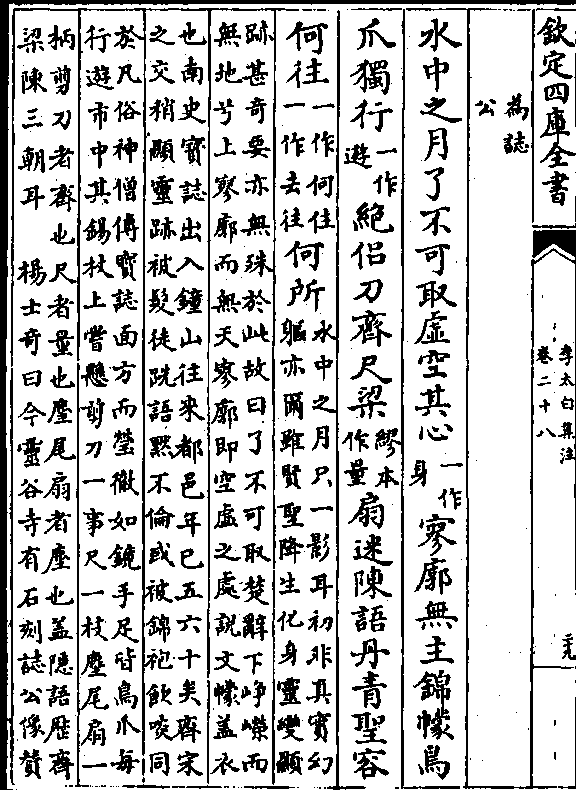 欽定四庫全書
李太白集注
卷二十八
二九
為誌
公
水中之月了不可取虛空其心一作身寥廓無主錦幪鳥
爪獨行一作遊絕侶刀齊尺梁繆本作量扇迷陳語丹青聖容
何往一作何住一作去往何所水中之月只一影耳初非真實幻
軀亦爾雖賢聖降生化身靈變顯
跡甚奇要亦無殊於此故曰了不可取楚辭下崢嶸而
無地兮上寥廓而無天寥廓即空虛之處說文幪蓋衣
也南史寳誌出入鐘山往來都邑年已五六十矣齊宋
之交稍顯靈跡被髮徒跣語黙不倫或被錦袍飲啖同
於凡俗神僧傳寳誌面方而瑩徹如鏡手足皆鳥爪每
行遊市中其錫杖上嘗懸剪刀一事尺一枝麈尾扇一
柄剪刀者齊也尺者量也麈尾扇者塵也盖隠語歴齊
梁陳三朝耳 楊士奇曰今靈谷寺有石刻誌公像贊